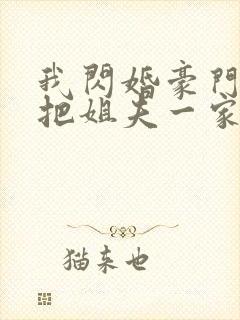 我閃婚豪門
把姐夫一家
猫来也